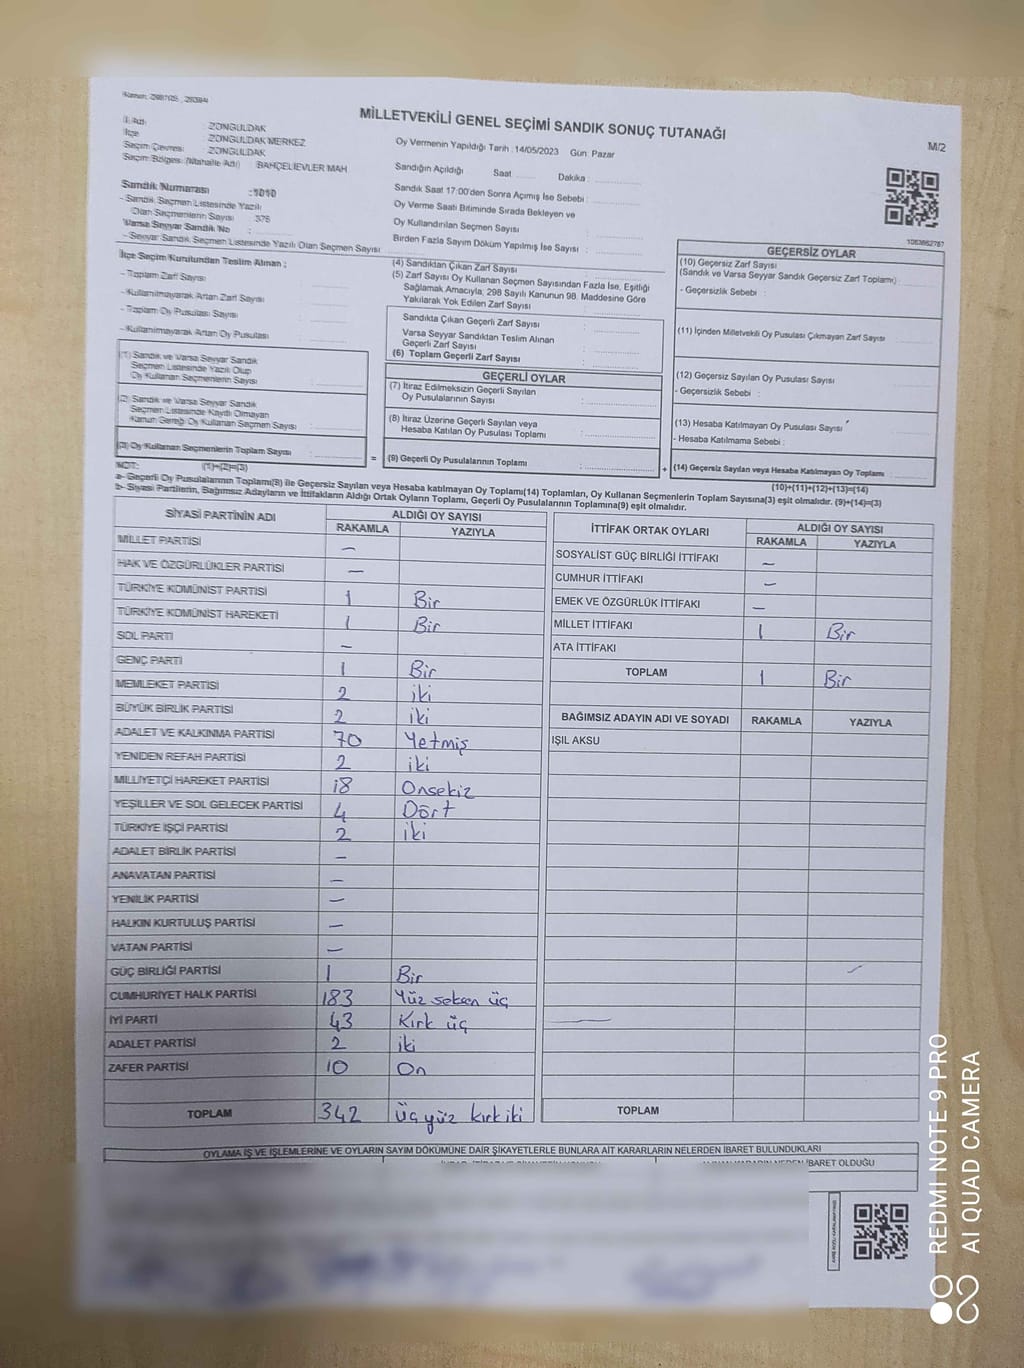 MİLLETVEKİLİ GENEL SEÇİMİ SANDIK SONUÇ TUTANAĞI
M/2
İl Adı : ZONGULDAK
İlçe : ZONGULDAK MERKEZ
Seçim Çevresi : ZONGULDAK
Seçim Bölgesi (Mahalle Adı) BAHÇELİEVLER MAH
Oy Vermenin Yapıldığı Tarih : 14/05/2023 Gün: Pazar
Sandığın Açıldığı Saat ...... Dakika : ......
Sandık Saat 17:00'den Sonra Açımış İse Sebebi :
Oy Verme Saati Bitiminde Sırada Bekleyen ve
Oy Kullandırılan Seçmen Sayısı :
Birden Fazla Sayım Döküm Yapılmış İse Sayısı :
Sandık Numarası : 1010
- Sandık Seçmen Listesinde
Yazılı Olan Seçmenlerin Sayısı 376
Varsa Seyyar Sandık No :
- Seyyar Sandık Seçmen Listesinde Yazılı Olan Seçmen Sayısı
1063662767
İlçe Seçim Kurulundan Teslim Alınan ;
- Toplam Zarf Sayısı :
- Kullanılmayarak Artan Zarf Sayısı :
- Toplam Oy Pusulası Sayısı :
- Kullanılmayarak Artan Oy Pusulası :
(1) Sandık ve Varsa Seyyar Sandık
Seçmen Listesinde Yazılı Olup
Oy Kullanan Seçmenlerin Sayısı :
(2) Sandık ve Varsa Seyyar Sandık
Seçmen Listesinde Kayıtlı Olmayan
Kanun Gereği Oy Kullanan Seçmen Sayısı :
(3) Oy Kullanan Seçmenlerin Toplam Sayısı :
(1)+(2)=(3)
(4) Sandıktan Çıkan Zarf Sayısı :
(5) Zarf Sayısı Oy Kullanan Seçmen Sayısından Fazla İse, Eşitliği
Sağlamak Amacıyla; 298 Sayılı Kanunun 98. Maddesine Göre
Yakılarak Yok Edilen Zarf Sayısı :
Sandıkta Çıkan Geçerli Zarf Sayısı :
Varsa Seyyar Sandıktan Teslim Alınan
Geçerli Zarf Sayısı :
(6) Toplam Geçerli Zarf Sayısı :
GEÇERLİ OYLAR
(7) İtiraz Edilmeksizin Geçerli Sayılan
Oy Pusulalarının Sayısı :
(8) İtiraz Üzerine Geçerli Sayılan veya
Hesaba Katılan Oy Pusulası Toplamı :
= (9) Geçerli Oy Pusulalarının Toplamı :
GEÇERSİZ OYLAR
(10) Geçersiz Zarf Sayısı
(Sandık ve Varsa Seyyar Sandık Geçersiz Zarf Toplamı)
- Geçersizlik Sebebi :
(11) İçinden Milletvekili Oy Pusulası Çıkmayan Zarf Sayısı
(12) Geçersiz Sayılan Oy Pusulası Sayısı
- Geçersizlik Sebebi :
(13) Hesaba Katılmayan Oy Pusulası Sayısı
- Hesaba Katılmama Sebebi :
+ (14) Geçersiz Sayılan veya Hesaba Katılmayan Oy Toplamı
(10)+(11)+(12)+(13)=(14)
NOT:
a- Geçerli Oy Pusulalarının Toplamı(9) ile Geçersiz Sayılan veya Hesaba katılmayan Oy Toplamı(14) Toplamları, Oy Kullanan Seçmenlerin Toplam Sayısına(3) eşit olmalıdır. (9)+(14)=(3)
b- Siyasi Partilerin, Bağımsız Adayların ve İttifakların Aldığı Ortak Oyların Toplamı, Geçerli Oy Pusulalarının Toplamına(9) eşit olmalıdır.
SİYASİ PARTİNİN ADI ALDIĞI OY SAYISI
RAKAMLA YAZIYLA
MİLLET PARTİSİ —
HAK VE ÖZGÜRLÜKLER PARTİSİ —
TÜRKİYE KOMÜNİST PARTİSİ 1 Bir
TÜRKİYE KOMÜNİST HAREKETİ 1 Bir
SOL PARTİ —
GENÇ PARTİ 1 Bir
MEMLEKET PARTİSİ 2 iki
BÜYÜK BİRLİK PARTİSİ 2 iki
ADALET VE KALKINMA PARTİSİ 70 Yetmiş
YENİDEN REFAH PARTİSİ 2 iki
MİLLİYETÇİ HAREKET PARTİSİ 18 Onsekiz
YEŞİLLER VE SOL GELECEK PARTİSİ 4 Dört
TÜRKİYE İŞÇİ PARTİSİ 2 iki
ADALET BİRLİK PARTİSİ —
ANAVATAN PARTİSİ —
YENİLİK PARTİSİ —
HALKIN KURTULUŞ PARTİSİ —
VATAN PARTİSİ —
GÜÇ BİRLİĞİ PARTİSİ 1 Bir
CUMHURİYET HALK PARTİSİ 183 Yüz seksen üç
İYİ PARTİ 43 Kırk üç
ADALET PARTİSİ 2 iki
ZAFER PARTİSİ 10 On
TOPLAM 342 Üçyüz kırk iki
İTTİFAK ORTAK OYLARI ALDIĞI OY SAYISI
RAKAMLA YAZIYLA
SOSYALİST GÜÇ BİRLİĞİ İTTİFAKI —
CUMHUR İTTİFAKI —
EMEK VE ÖZGÜRLÜK İTTİFAKI —
MİLLET İTTİFAKI 1 Bir
ATA İTTİFAKI
TOPLAM 1 Bir
BAĞIMSIZ ADAYIN ADI VE SOYADI RAKAMLA YAZIYLA
IŞIL AKSU
TOPLAM
OYLAMA İŞ VE İŞLEMLERİNE VE OYLARIN SAYIM DÖKÜMÜNE DAİR ŞİKAYETLERLE BUNLARA AİT KARARLARIN NELERDEN İBARET BULUNDUKLARI
İBARET OLDUĞU
REDMI NOTE 9 PRO
AI QUAD CAMERA